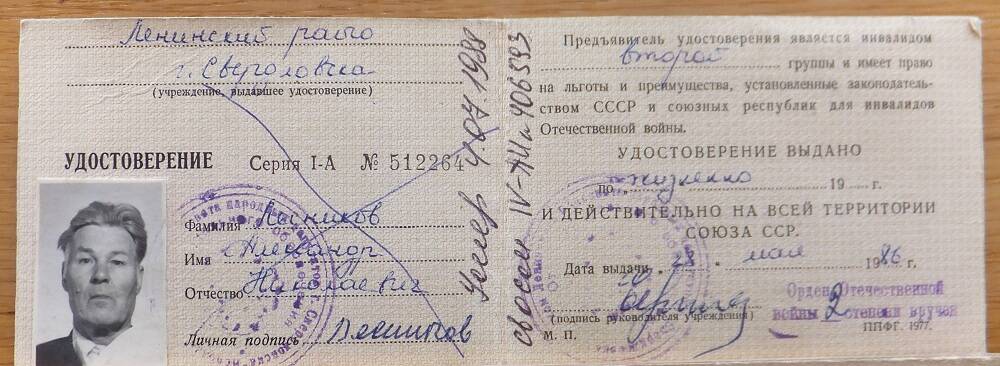 Ленинский райо
г. Свердловска
(учреждение, выдавшее удостоверение)
УДОСТОВЕРЕНИЕ Серия I-А № 512264
Фамилия Лесников
Имя Александр
Отчество Николаевич
Личная подпись Лесников
Умер 4.07.1988
IV-АИ № 406593
Предъявитель удостоверения является инвалидом
второй группы и имеет право
на льготы и преимущества, установленные законодатель-
ством СССР и союзных республик для инвалидов
Отечественной войны.
УДОСТОВЕРЕНИЕ ВЫДАНО
по „ жизненно 19 г.
И ДЕЙСТВИТЕЛЬНО НА ВСЕЙ ТЕРРИТОРИИ
СОЮЗА ССР.
Дата выдачи „ мая 1986 г.
(подпись руководителя учреждения)
М. П.
Орден Отечественной
войны 2 степени вручен
ППФГ. 1977.